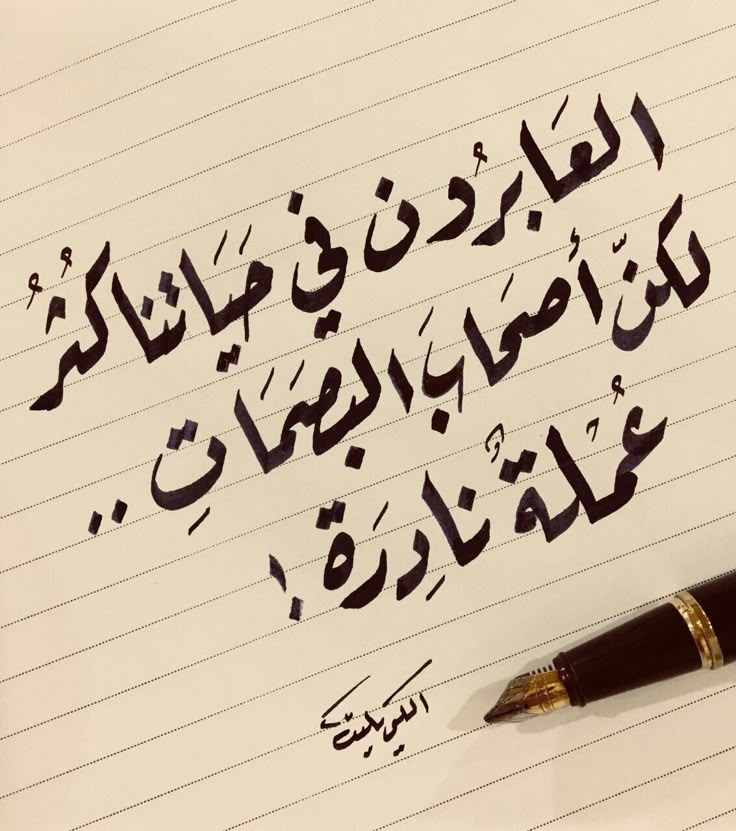 العَابرُون في حَيَاتنا كُثُرُ
لكنّ أصحَابَ البَصَمَاتِ ..
عُمْلةٌ نادِرَة !